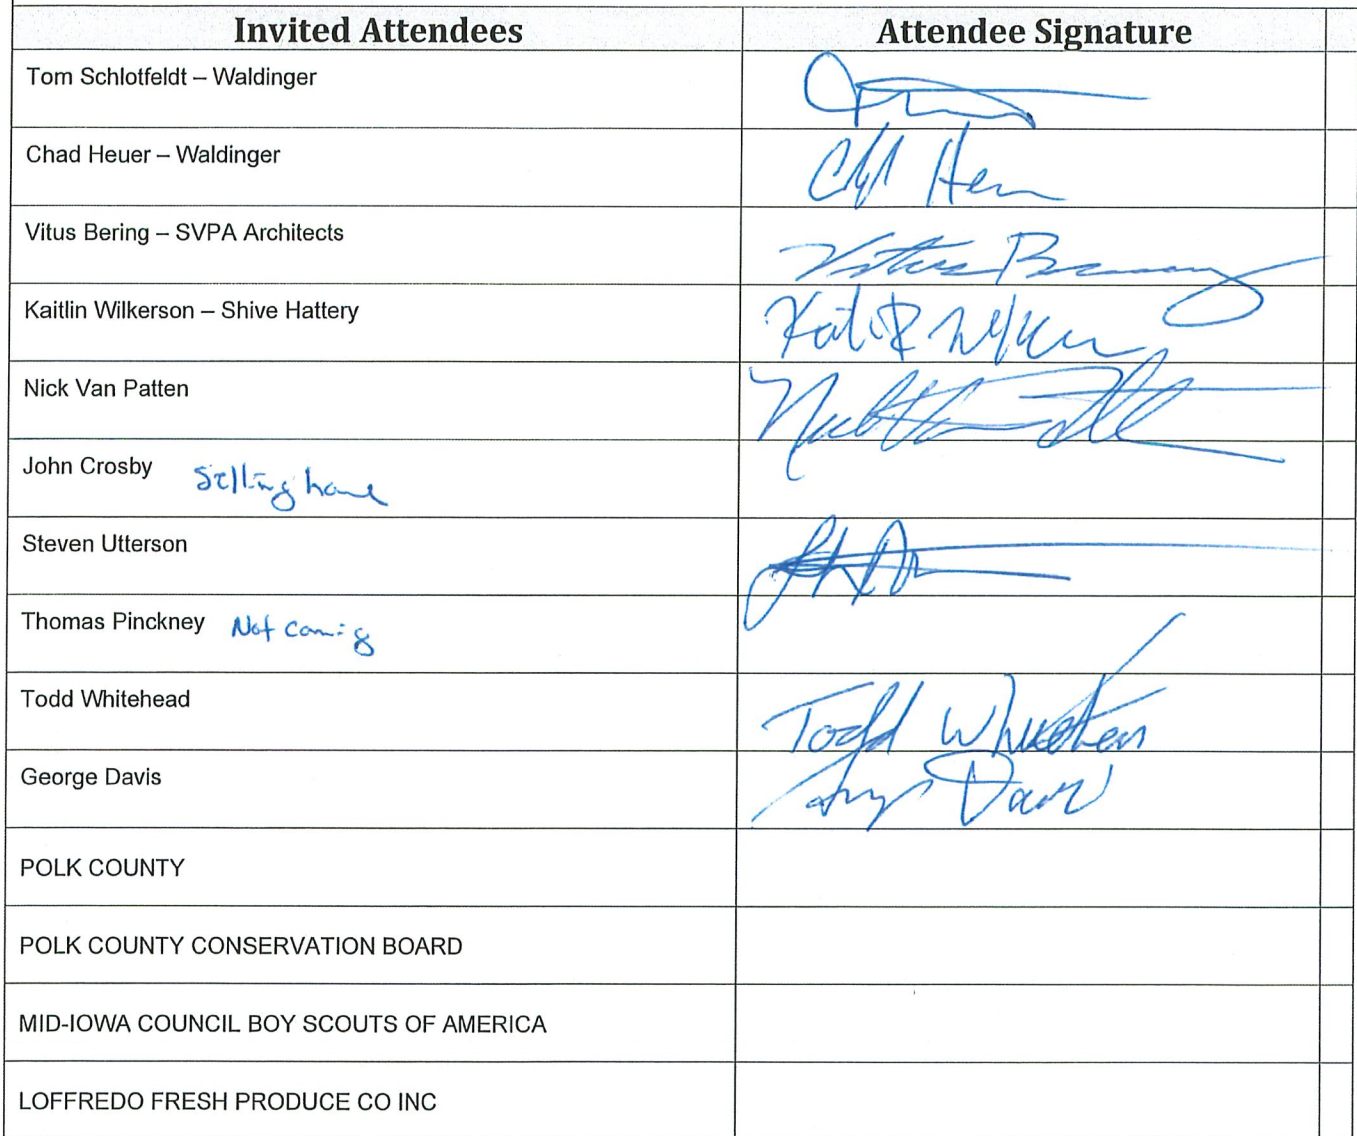 Invited Attendees Attendee Signature
Tom Schlotfeldt – Waldinger
Chad Heuer – Waldinger
Vitus Bering – SVPA Architects Vitus Bering
Kaitlin Wilkerson – Shive Hattery
Nick Van Patten
John Crosby Selling home
Steven Utterson
Thomas Pinckney Not coming
Todd Whitehead Todd Whitehead
George Davis George Davis
POLK COUNTY
POLK COUNTY CONSERVATION BOARD
MID-IOWA COUNCIL BOY SCOUTS OF AMERICA
LOFFREDO FRESH PRODUCE CO INC